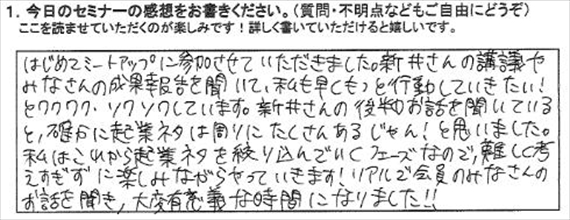 1. 今日のセミナーの感想をお書きください。（質問・不明点などもご自由にどうぞ）
ここを読ませていただくのが楽しみです！詳しく書いていただけると嬉しいです。
はじめてミートアップに参加させていただきました。新井さんの講義や
みなさんの成果報告を聞いて、私も早くもっと行動していきたい！
とワクワク・ソワソワしています。新井さんの後半のお話を聞いている
と、確かに起業ネタは周りにたくさんあるじゃん！と思いました。
私はこれから起業ネタを絞り込んでいくフェーズなので、難しく考
えすぎずに楽しみながらやっていきます！リアルで会員のみなさんの
お話を聞き、大変有意義な時間になりました!!